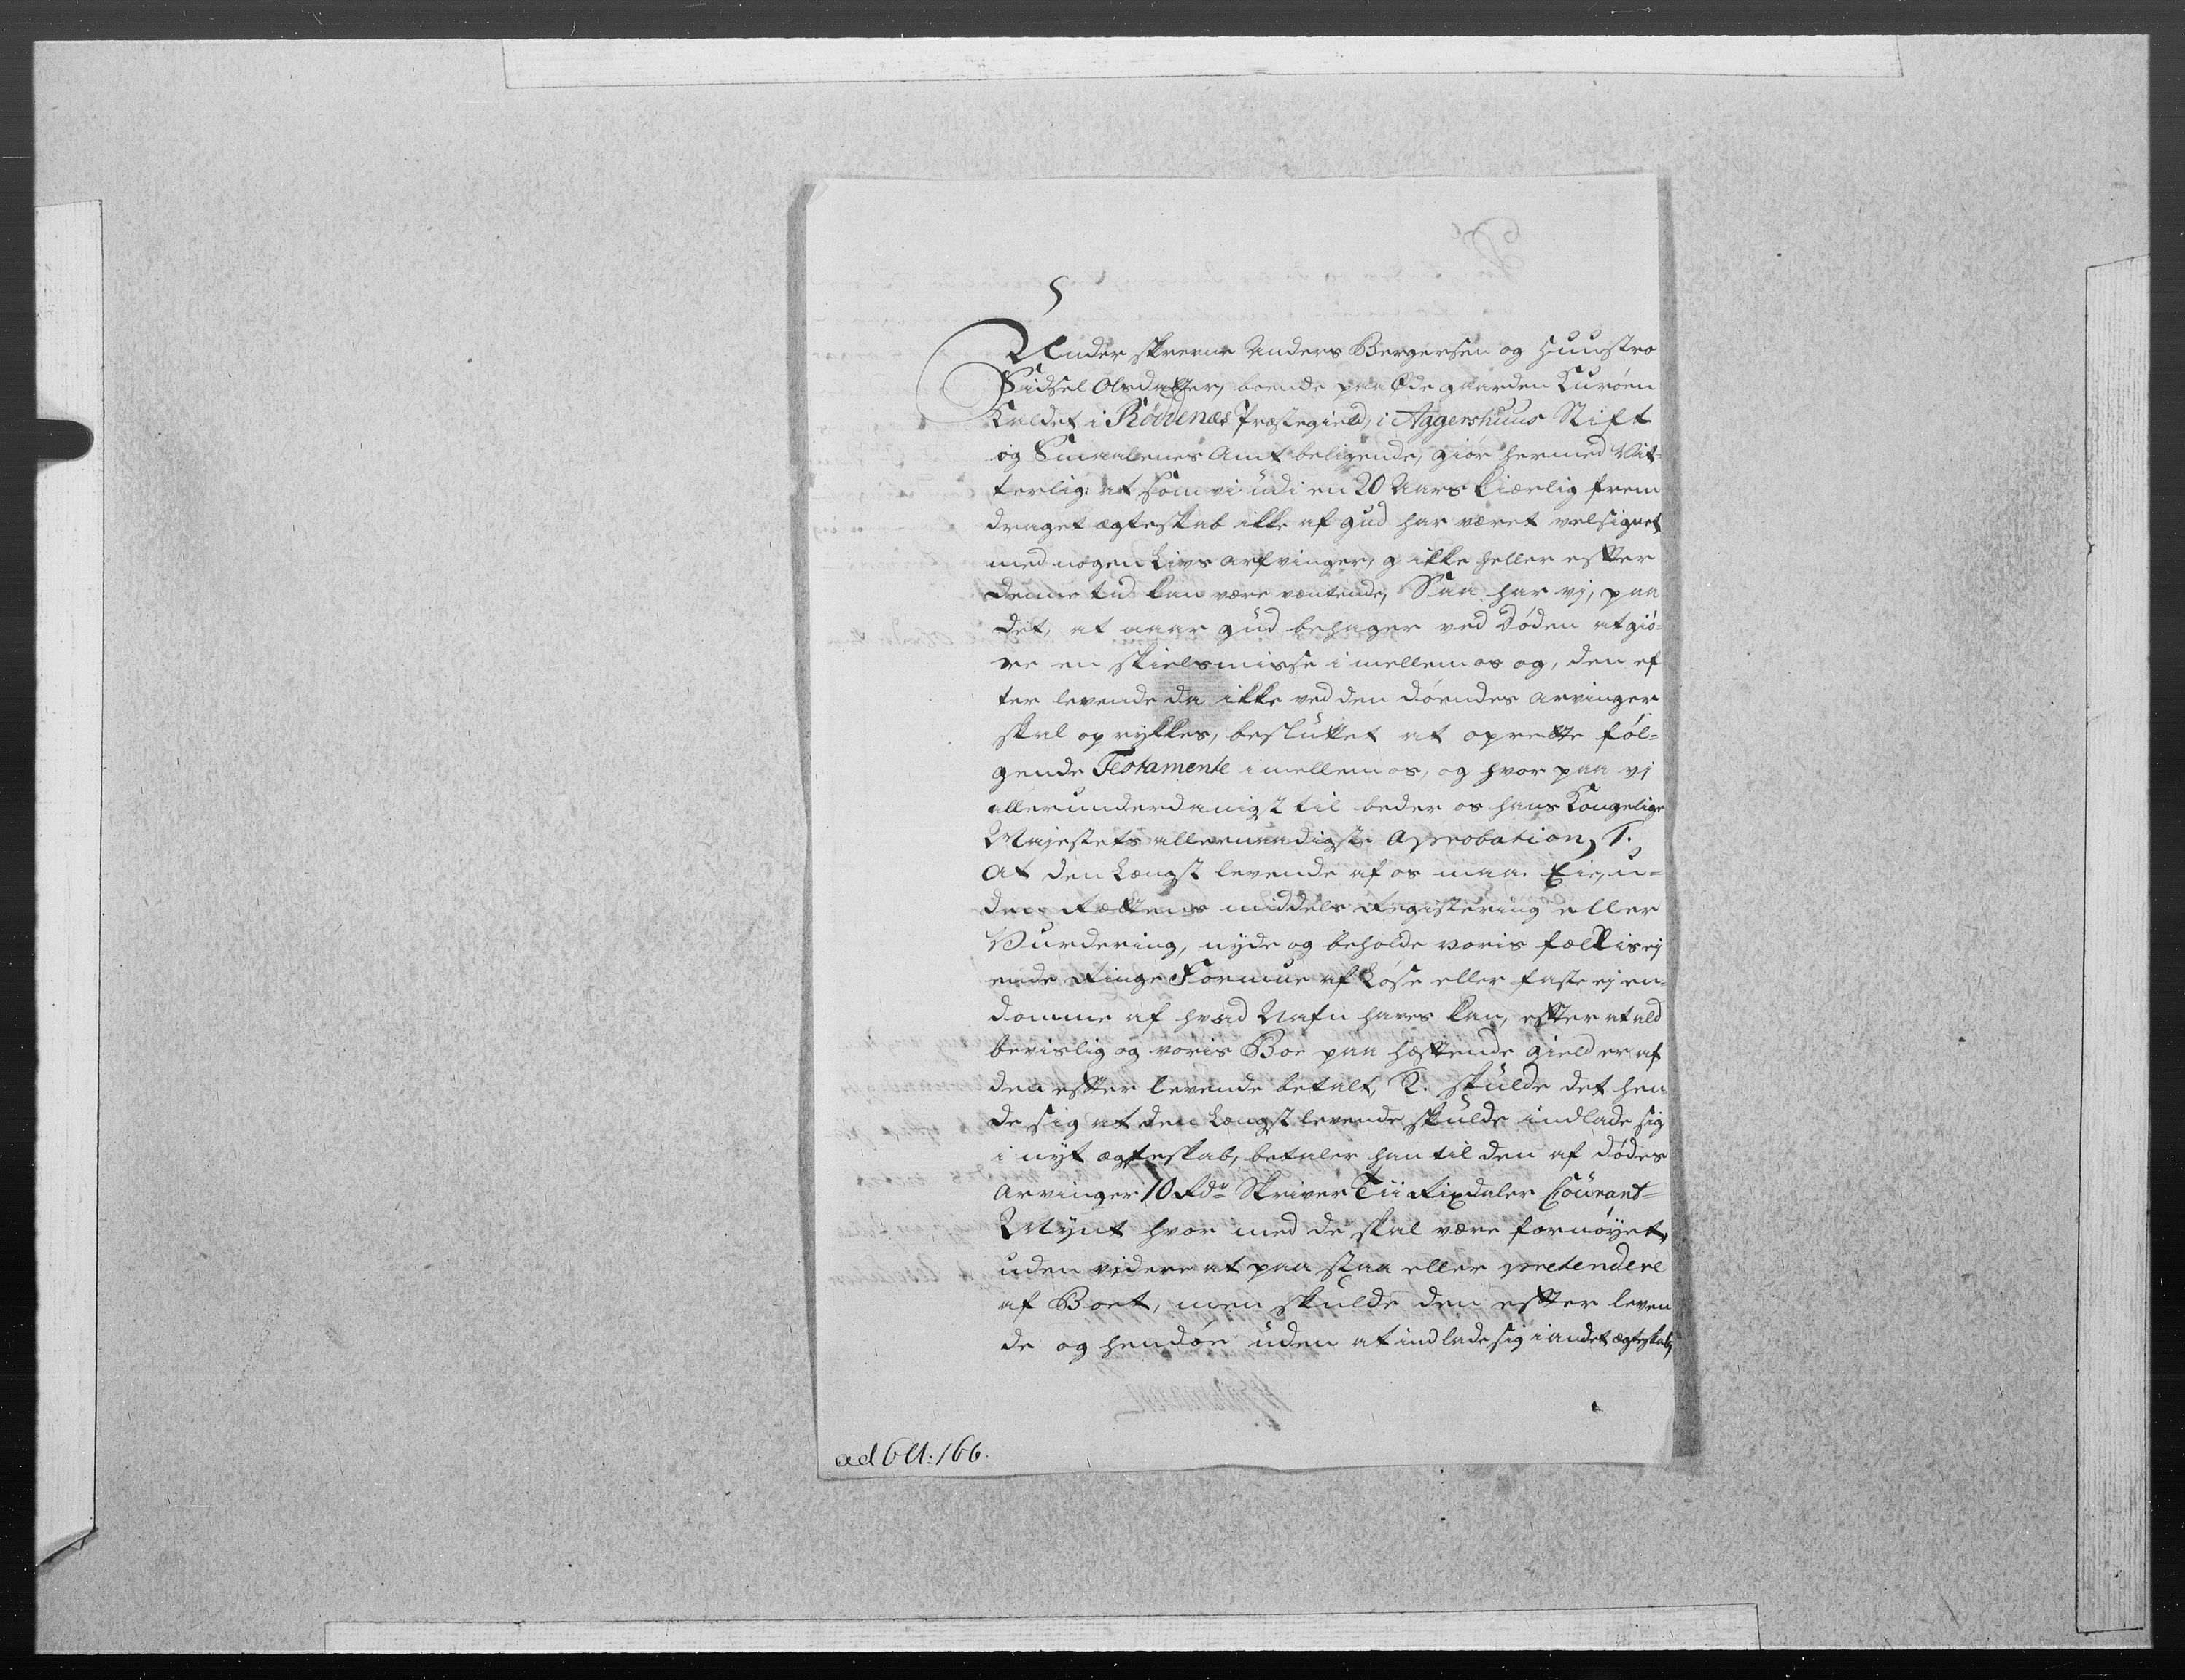 Under skrevne Anders Bergersen og Huustro
Sidsel Olsdatter, boende paa Øde gaarden Kuröen
Kaldet i Röddenæs Præstegield, i Aggershuus Stift
og Smaalenes Amt beligende, giör hermed Vit-
terlig: at som vi udi en 20 Aars kiærlig frem
draget ægteskab ikke af gud har været velsignet
med nogen Livs arfvinger, og ikke heller efter
denne tid kan være væntende, Saa har vj, paa
det, at naar gud behager ved Döden at giö-
re en skielsmisse i mellem os og, den ef
ter levende da ikke ved den döendes arvinger
skal op rykkes, besluttet at oprette föl-
gende Testamente imellem os, og hvor paa vj
allerunderdanigst til beder os hans Kongelige
Majestets allernaadigste Aprobation, 1.
At den Længst levende af os maa Eie, u-
den Rættens middels Registering eller
Vurdering, nyde og beholde voris fællis ej
ende Ringe Formue af Löse eller faste ejen-
domme af hvad Nafn haves kan, efter at ald
bevislig og voris Boe paa hæftende gield er af
den efter levende betalt, 2. skulde det hen
de sig at den Længst levende skulde indlade sig
i nyt ægteskab, betaler han til den af dödes
Arvinger 10 Rdr Skriver Tii Rixdaler Courant-
Mynt hvor med de skal være fornöyet,
uden videre at paa staa eller prætendere
af Boet, men skulde den efter leven
de og hendöe uden at indlade sig i andet ægteskab,
ad 6 A: 166.